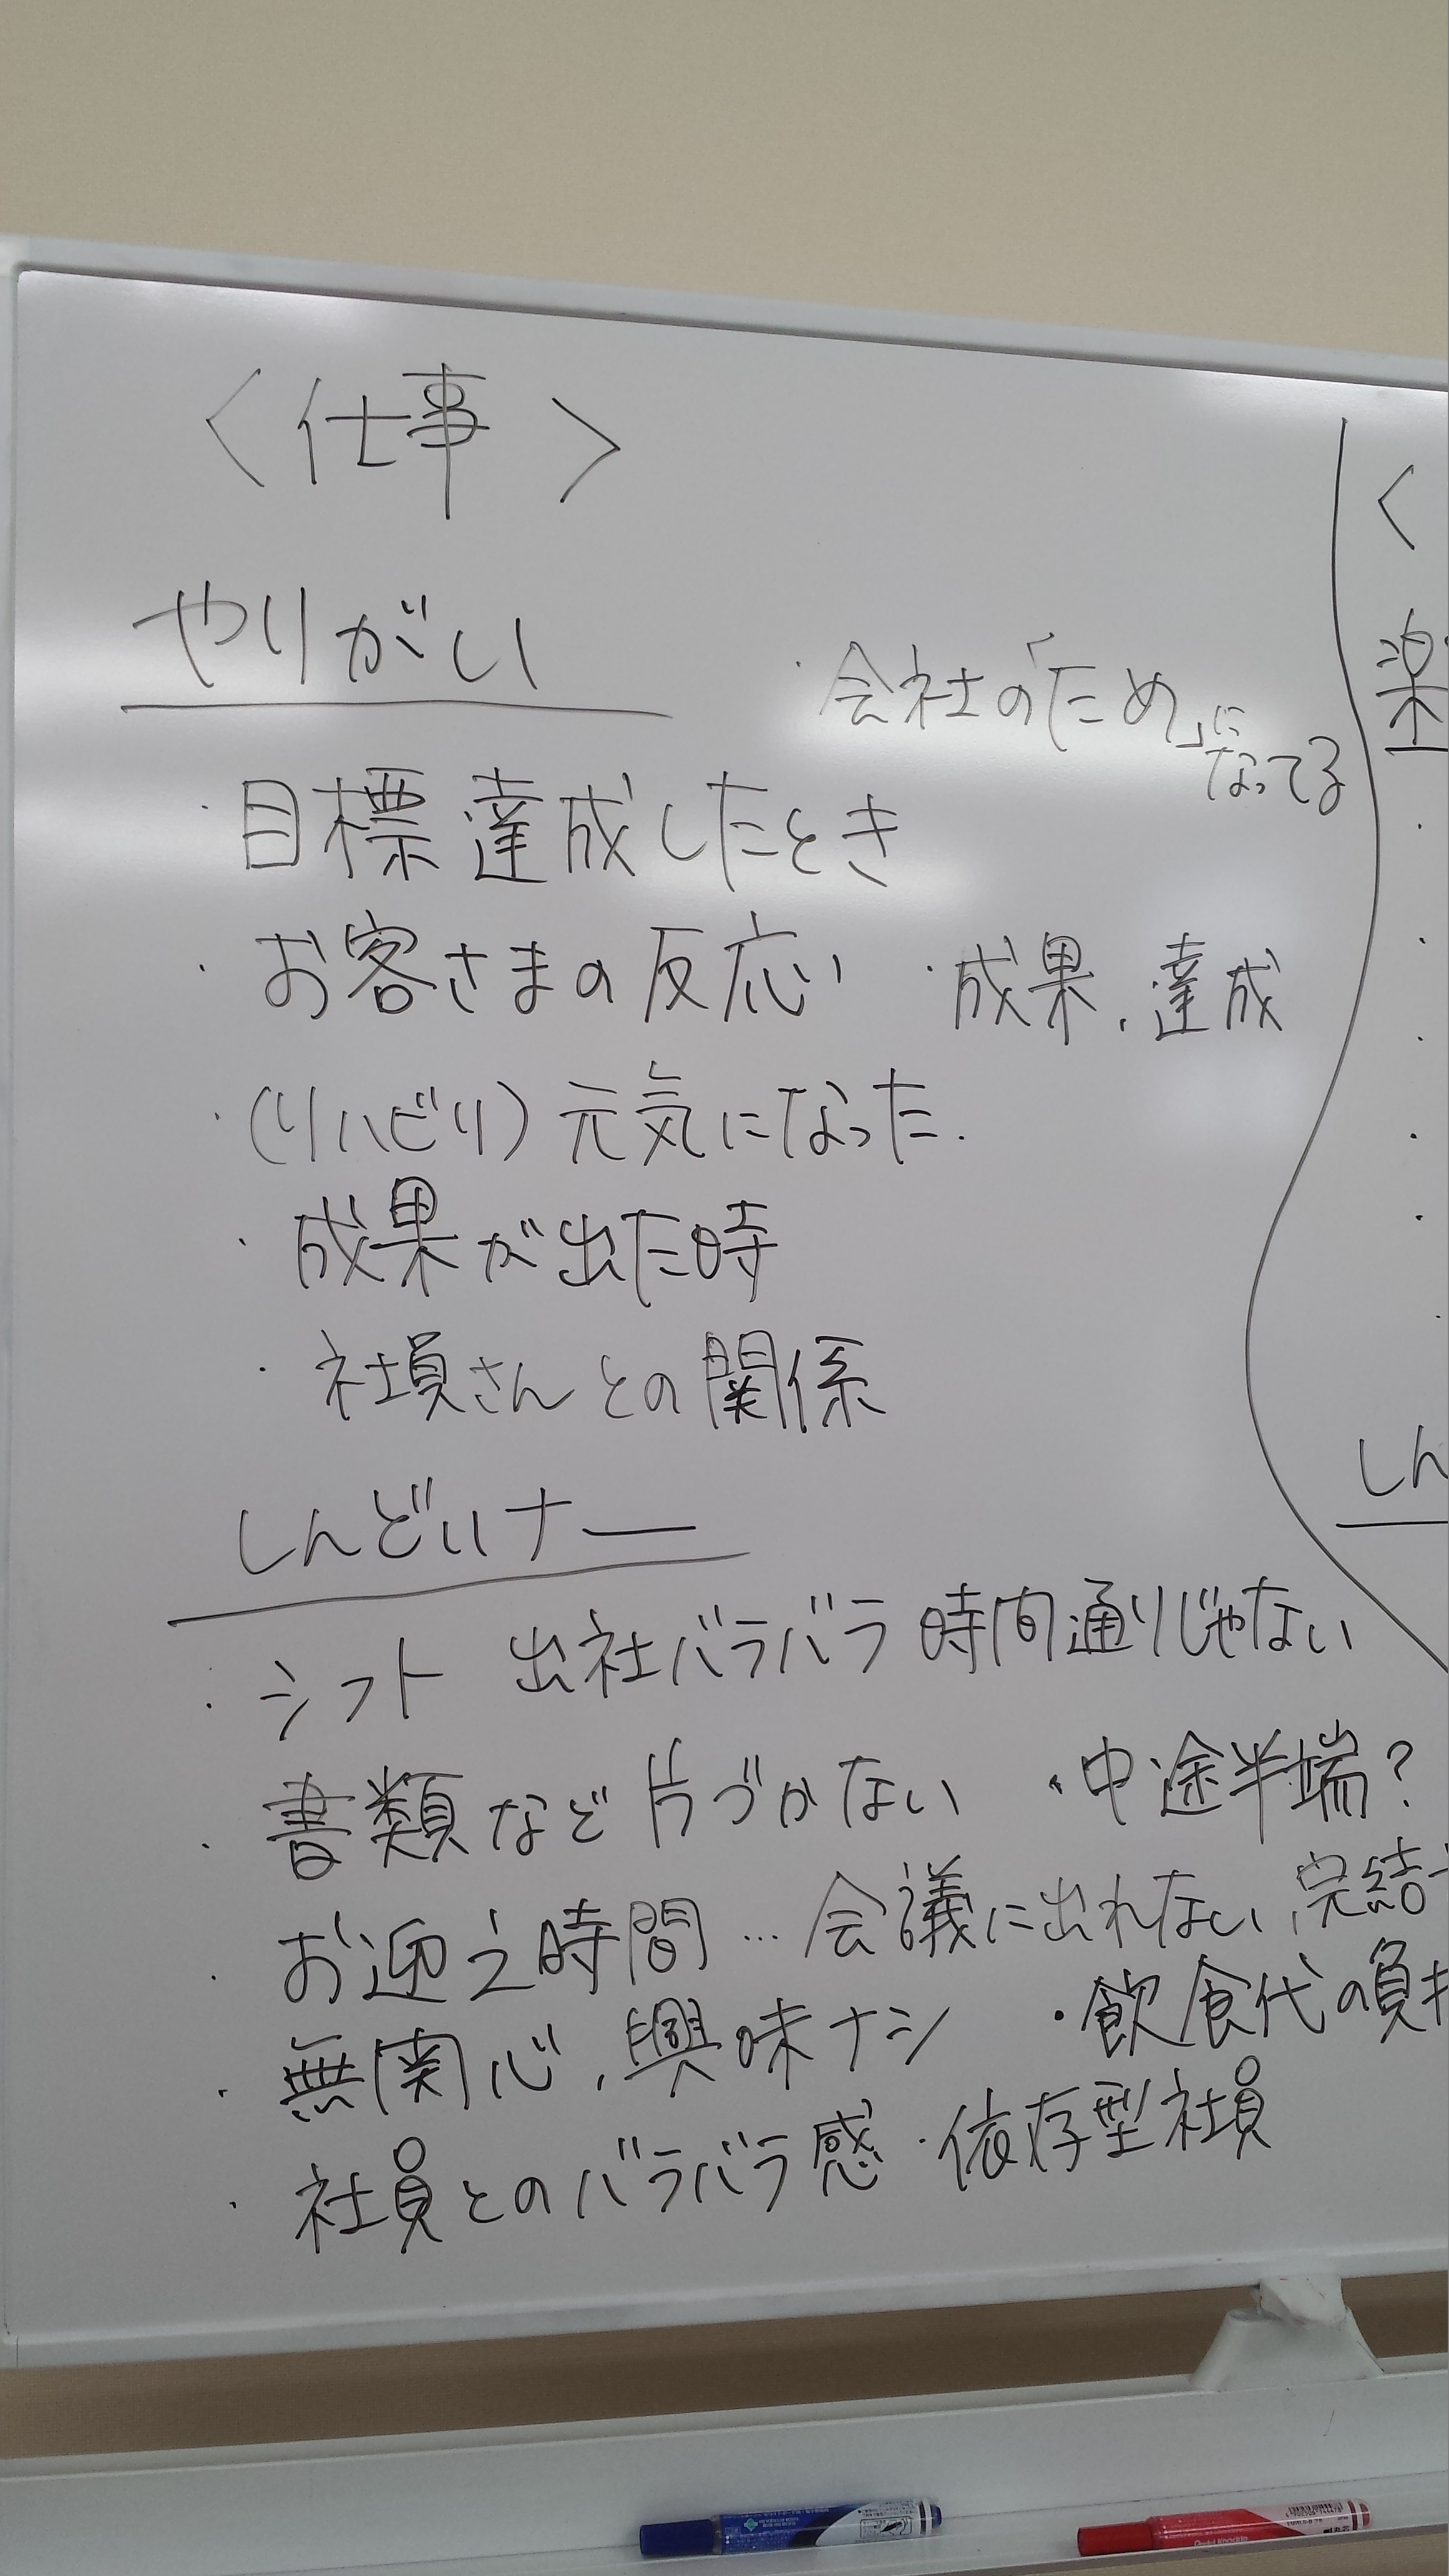 〈仕事〉
やりがい
・会社の「ため」に
なってる
・目標達成したとき
・お客さまの反応い
・成果、達成
・(リハビリ)元気になった.
・成果が出た時
・社員さんとの関係
しんどいナー
・シフト 出社バラバラ 時間通りじゃない
・書類など片づかない ・中途半端?
・お迎え時間…会議に出れない、完結
・無関心、興味ナシ ・飲食代の負
・社員とのバラバラ感 ・依存型社員
〈
楽
しん